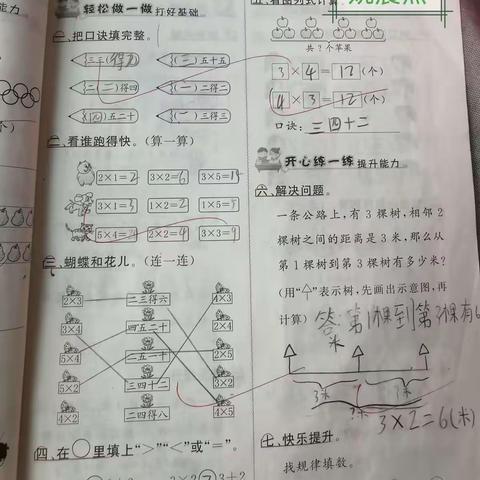 轻松做一做 打好基础
一、把口诀填完整。
三三(得九) (一)五十五
二(二)得四 (一)二得二
(四)五二十 (一)三得三
二、看谁跑得快。(算一算)
2×1=2 3×2=6 3×5=15
3×1=3 1×2=2 1×5=5
5×4=20 2×2=4 3×3=9
三、蝴蝶和花儿。(连一连)
2×3 二三得六 4×3
3×4 四五二十 2×4
5×4 二五一十 2×5
5×2 三四十二 3×2
4×2 二四得八 4×5
四、在○里填上“>”“<”或“=”。
五、看图列式计算
共?个苹果
3×4=12(个)
4×3=12(个)
口诀:三四十二
开心练一练 提升能力
六、解决问题。
一条公路上,有3棵树,相邻2
棵树之间的距离是3米,那么从
第1棵树到第3棵树有多少米?
(用“个”表示树,先画出示意图,再
计算)
答:第1棵到第3棵有6
米
3米 3米
3×2=6(米)
七、快乐提升。
找规律填数。